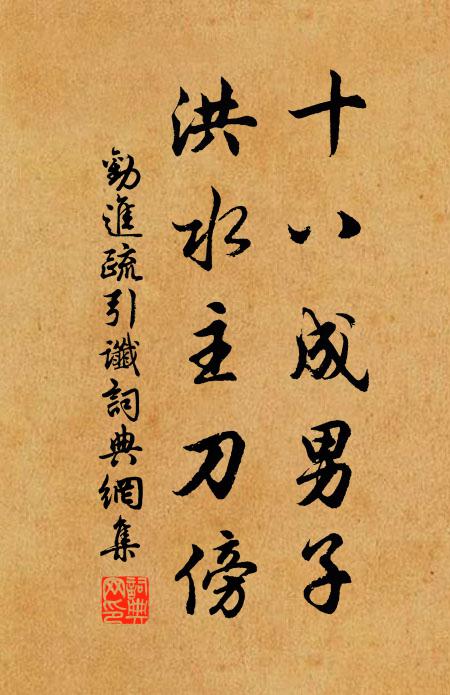 十八成男子
洪水主刀傍
勸進疏引讖詞典網集
詞典網印